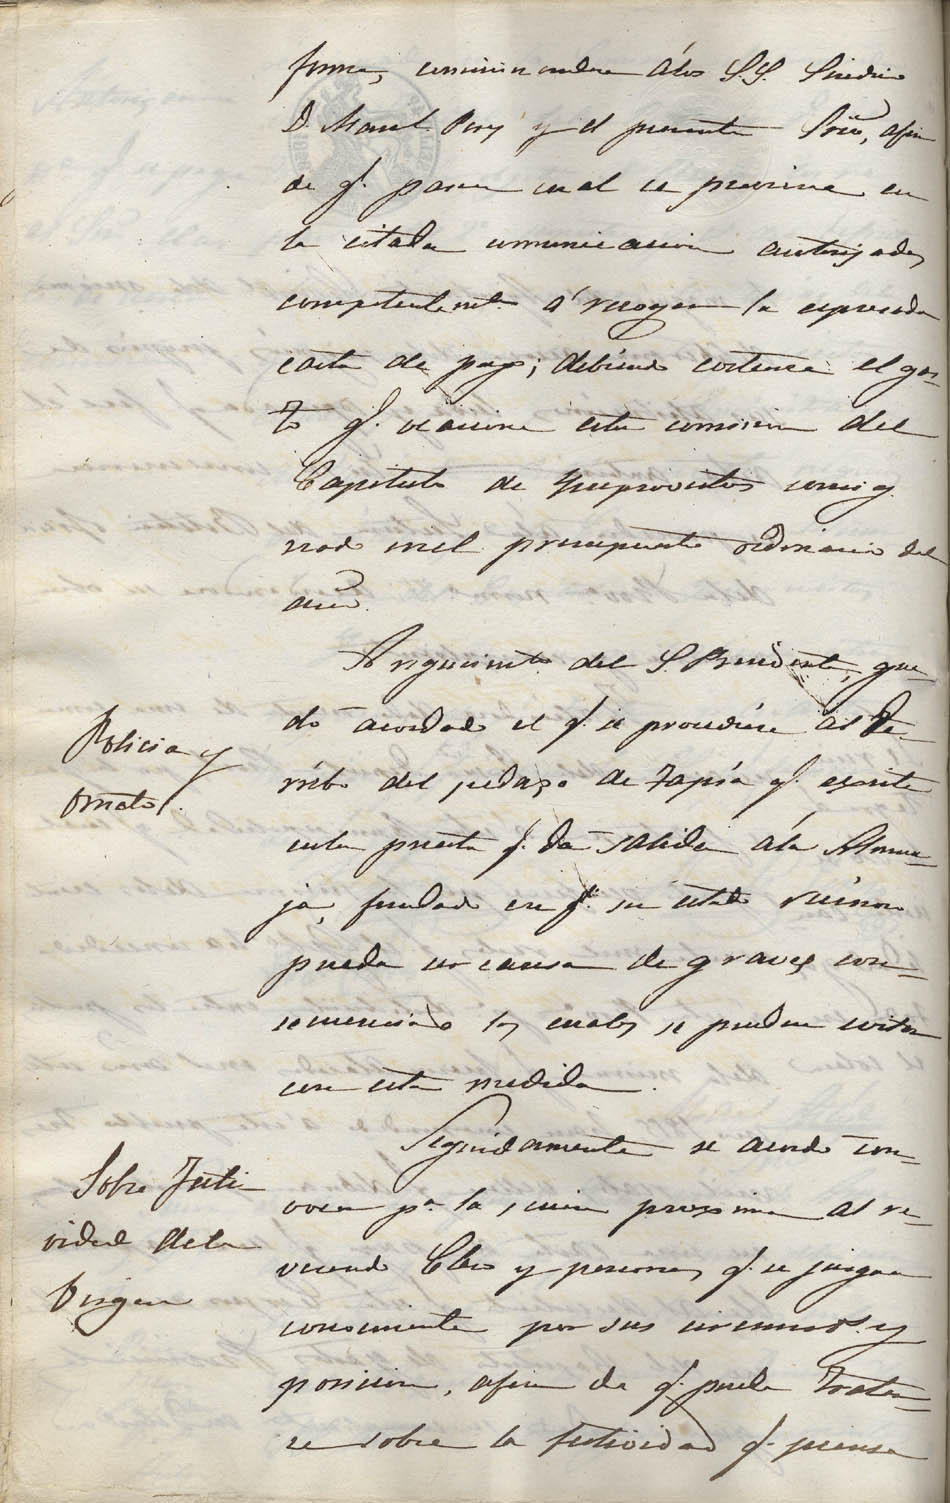 forma, comisionandose á los S.S. Sindico
D. Manuel Perez y el presente Srio, afin
de q.e pasen cual se previene en
la citada comunicacion autorizados
competentem.te á recoger la espresada
carta de pago; debiendo costearse el gas-
to q.e ocasione esta comision del
Capitulo de Ymprovistos consig-
nado en el presupuesto ordinario del
año.
A seguimiento del S. Presidente, que-
dó acordado el q.e se procediese al de-
rribo del pedazo de tapia q.e existe
en la puerta q.e dá salida á la
ja, fundado en q.e su estado ruinoso
pueda ser causa de graves con-
secuencias las cuales se pueden evitar
con esta medida.
Policia y
Ornato.
Seguidamente se acordó con-
vocar p.a la sesion proxima al re-
verendo Clero y personas q.e se juzgue
conveniente por sus circunst.s y
posicion, afin de q.e pueda tratar-
se sobre la festividad q.e piensa
Sobre Festi-
vidad de la
Virgen